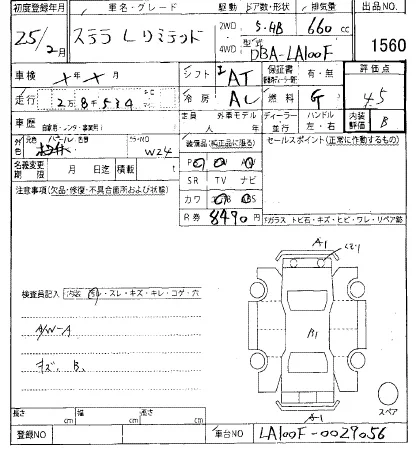 初度登録年月 車名・グレード 駆動 ドア数・形状 排気量 出品NO.
25/2月 ステラ Lリミテッド 2WD 4WD 5.HB 660 cc
型式 DBA-LA100F 1560
車検 年 月 シフト AT 保証書 有・無 評価点
走行 2万8千534 冷房 AC 燃料 G 4.5
車歴 自家用・レンタ・事業用 定員 人 外車モデル 年 ディーラー・並行 ハンドル 左・右 内装評価 B
外色 元色 パール 色替 カラーNO W24 装備品(純正品に限る) セールスポイント(正常に作動するもの)
名義変更期限 月 日迄 積載 PS PW AW
注意事項(欠品・修復・不具合箇所および状態) SR TV ナビ
カワ
R券 8490円 ガラス トビ石・キズ・ヒビ・ワレ・リペア跡
A1
検査員記入 内装 ヨゴレ・スレ・キズ・キレ・コゲ・穴
A/W-A
キズ、B、
B1
スペア
A-1
長さ cm 幅 cm 高さ cm
登録NO 車台NO LA100F-0029056